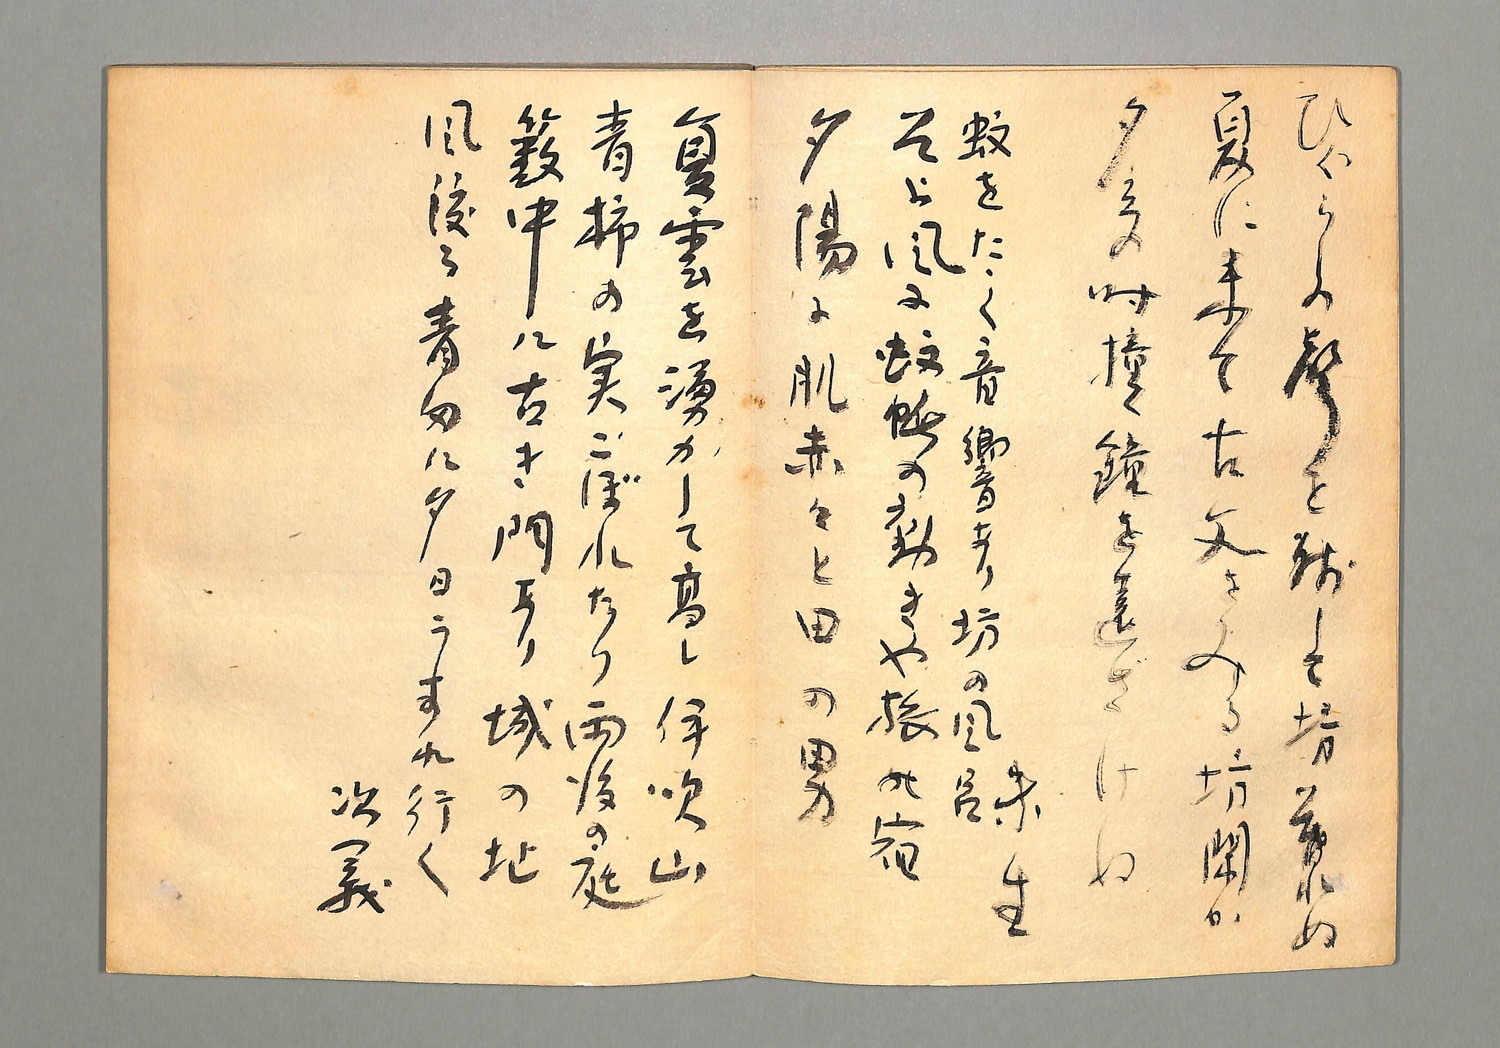 ひぐらしの声を残して坊暮れぬ
夏に来て古文をみる坊閑か
夕立の時撞く鐘を遠ざけぬ
未生
蚊をたく音響きあり坊の風呂
そよ風に蚊帳の動きや旅の宿
夕陽に肌赤々と田の男
夏雲を湧かして高し伊吹山
青柿の実こぼれたり雨後の庭
籔中に古き門あり城の址
風渡る青田に夕日うすれ行く
次義